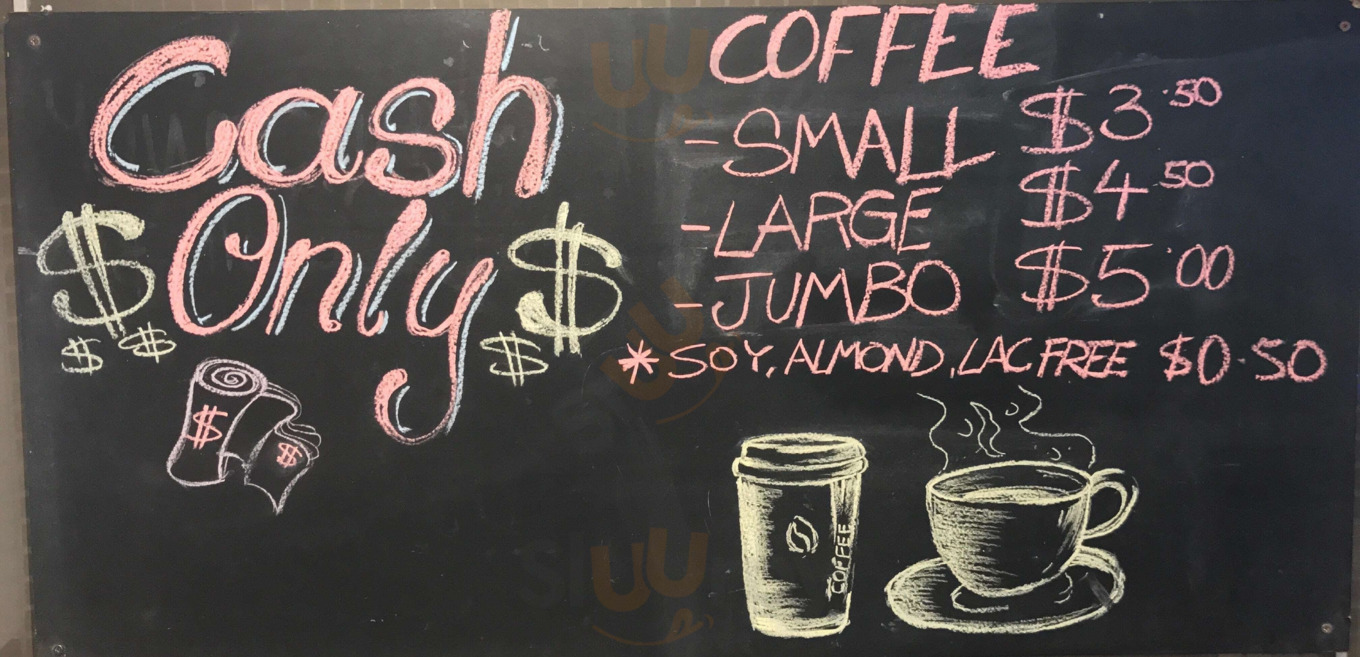 Cash
Only
$ $
$ $ $
$ $
COFFEE
-SMALL $3.50
-LARGE $4.50
-JUMBO $5.00
*SOY, ALMOND, LAC FREE $0.50
COFFEE